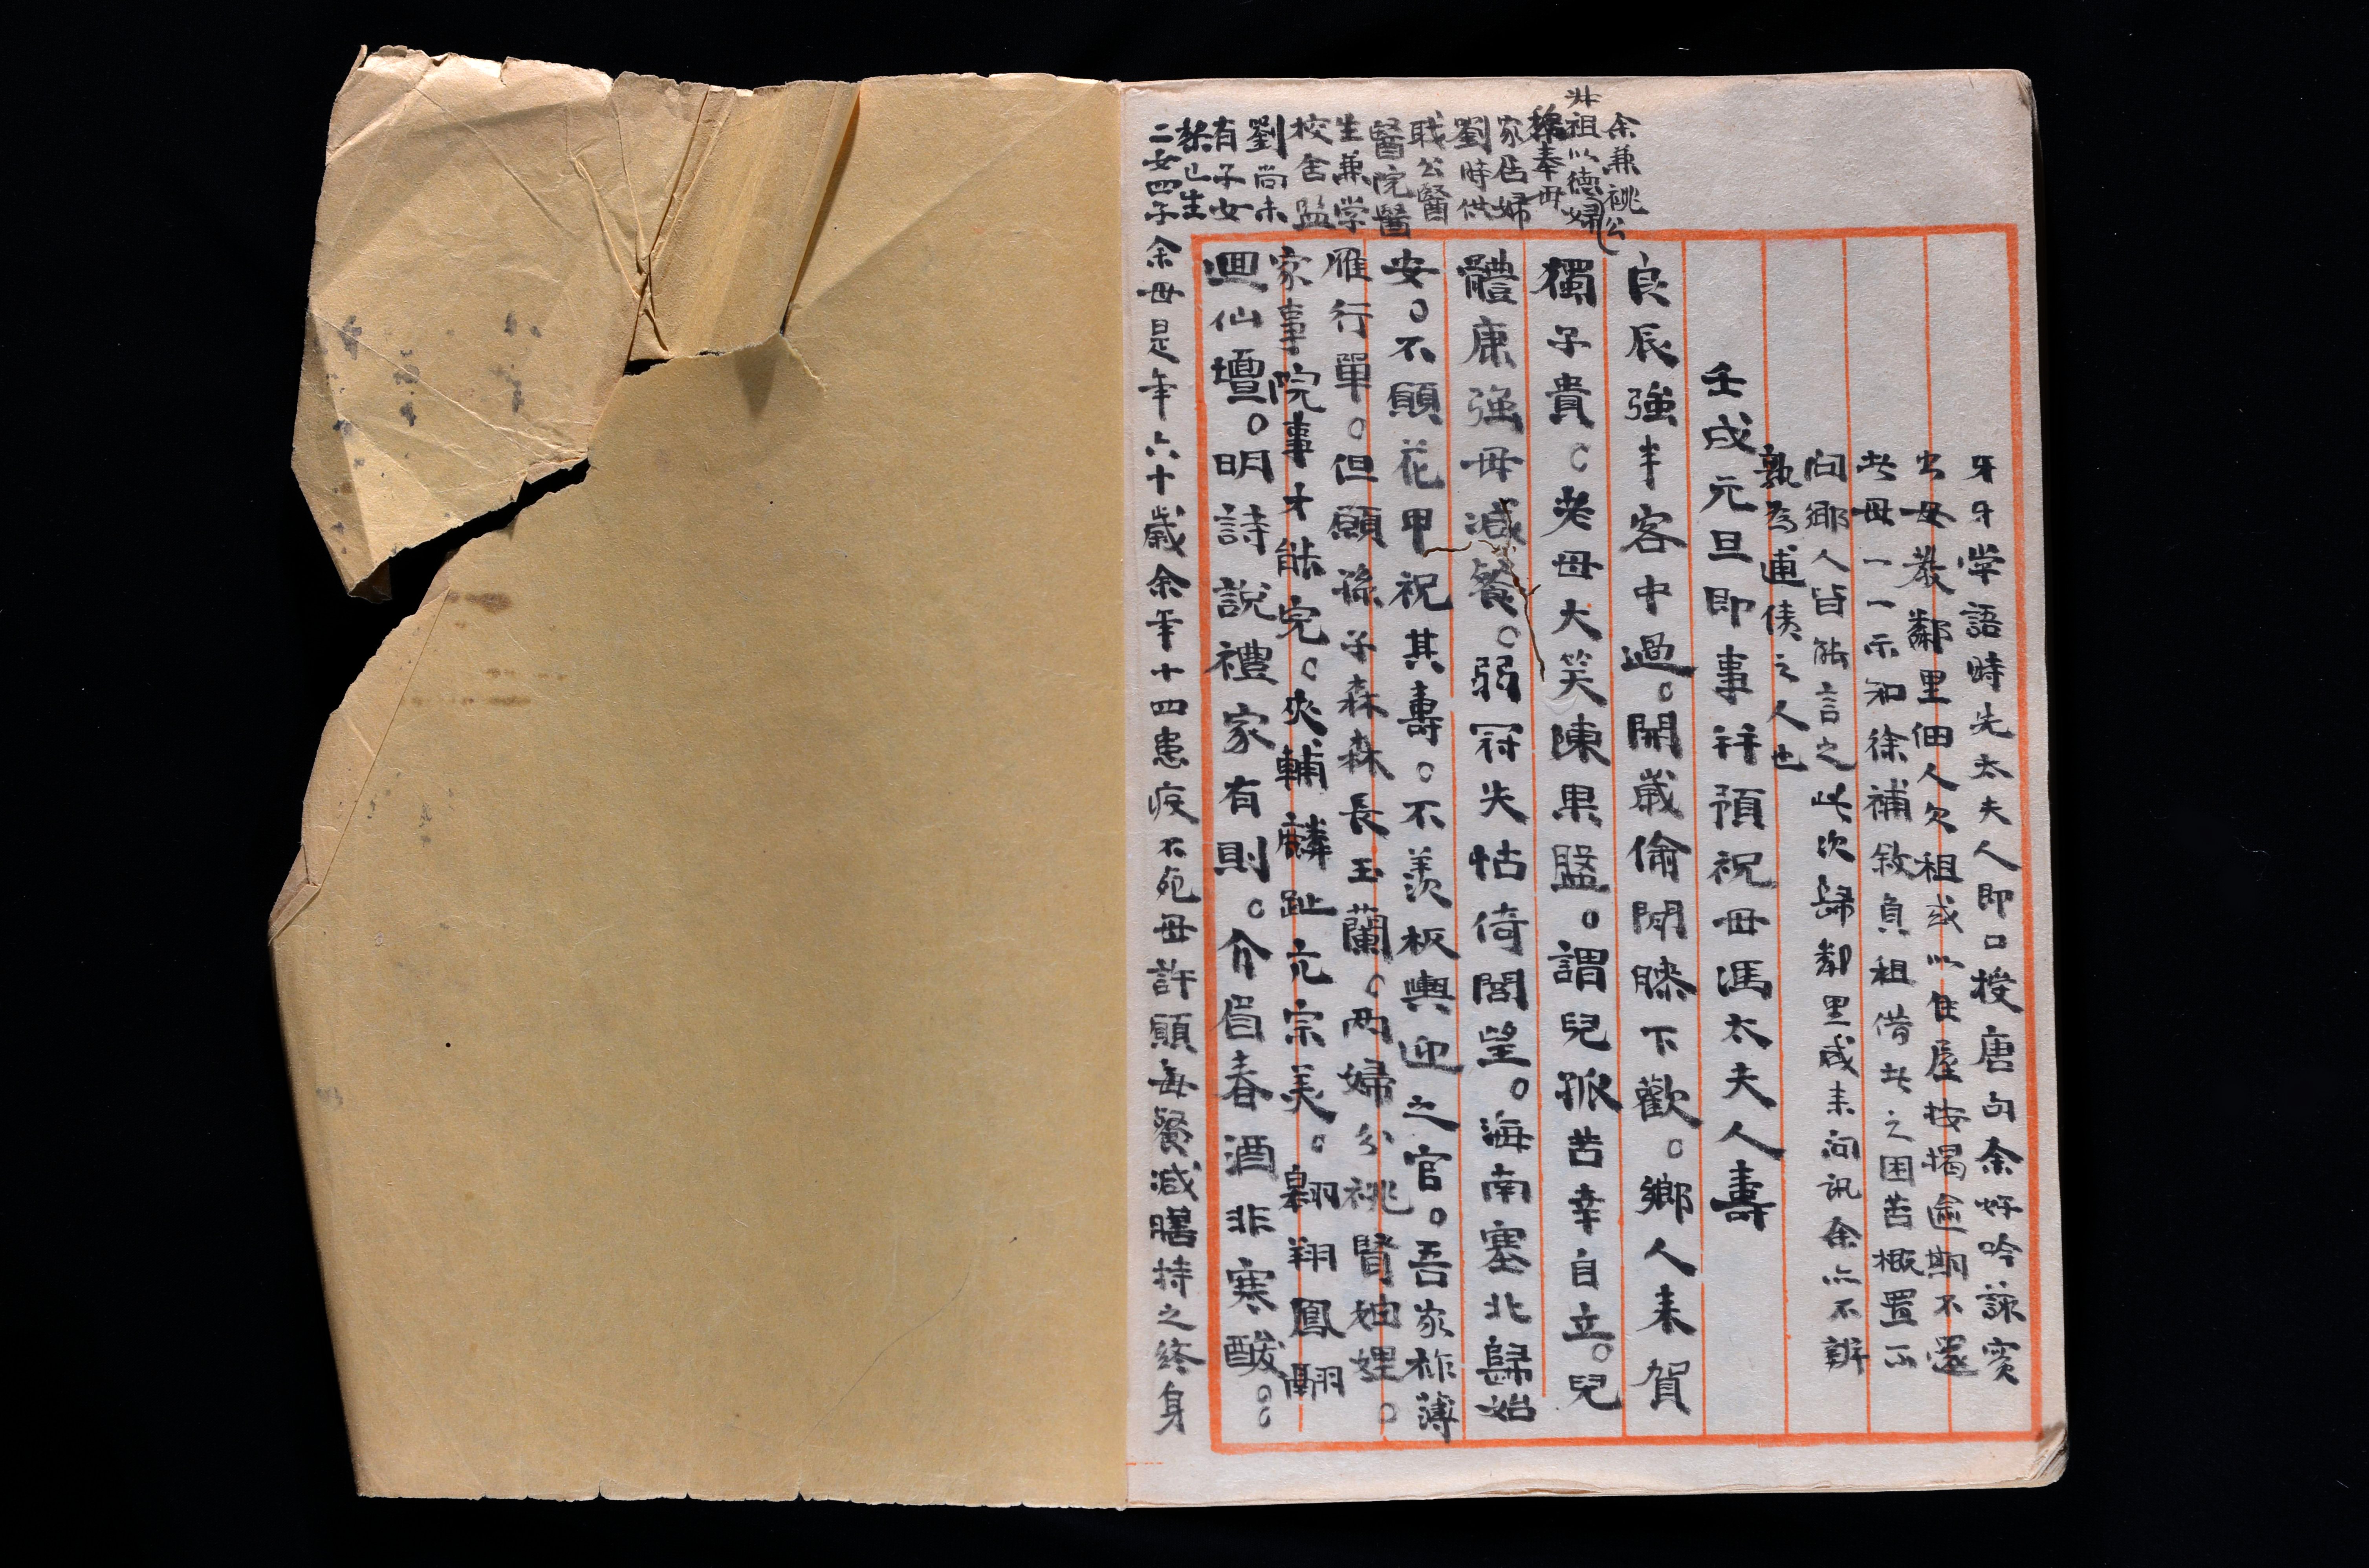 牙牙学語時先太夫人即口授唐句余好吟詠實
出母教鄰里佃人欠租或以住屋按揭逾期不還
先母一一示知徐補救負租借者之困苦概置不
問鄉人皆能言之此次歸鄰里咸来問訊余亦不辨
孰為逋債之人也
壬戌元旦即事并預祝母馮太夫人壽
良辰強半客中過。開歲偷閒膝下歡。鄉人来賀
獨子貴。老母大笑陳果盤。謂兒孤苦幸自立。兒
體康强母減餐。弱冠失怙倚閭望。海南塞北歸始
安。不願花甲祝其壽。不羨板輿迎之官。吾家祚薄
雁行單。但願孫子森森長玉蘭。兩婦分祧賢妯娌。
家事院事才能完。夾輔麟趾亢宗美。翱翔鳳翮
迴仙壇。明詩說禮家有則。介眉春酒非寒酸。
余兼祧公
祖以德婦
奉母
家居婦
劉時供
職公醫
醫院醫
生兼学
校舍監
劉尚未
有子女
黎已生
二女四子
余母是年六十歲余年十四患疫不死母許願每餐減膳持之終身